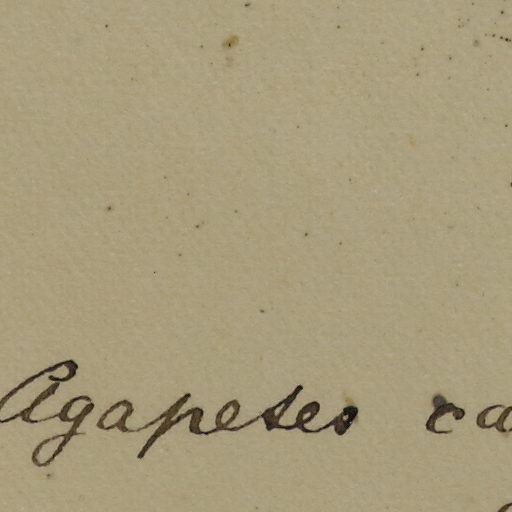 Agapetes ca